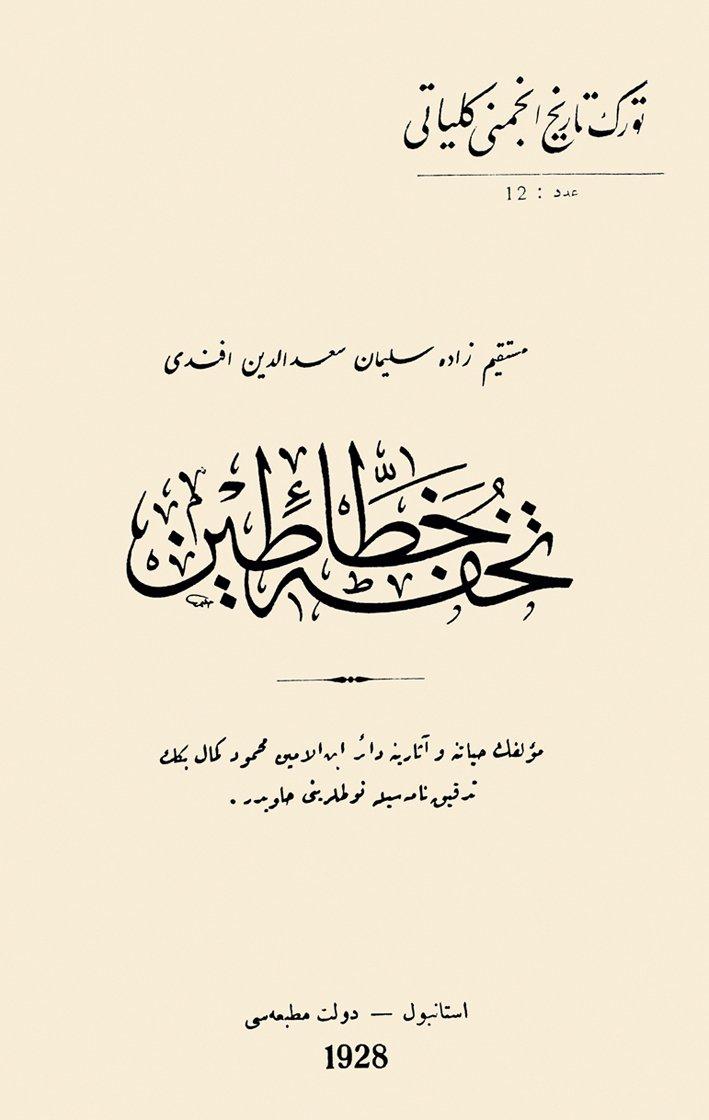 تورك تاريخ انجمنی كلياتی
عدد : 12
مستقيم زاده سليمان سعدالدين افندی
تحفۀ خطاطين
مؤلفك حياتنه و آثارينه دائر ابن الامين محمود كمال بكك
تدقيق نامه‌سيله نوطلرينی حاويدر .
استانبول — دولت مطبعه‌سی
1928